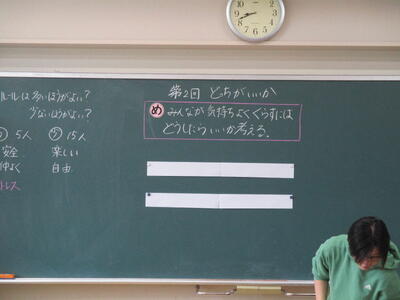 ルールは多いほうがよい?
少ないほうがよい?
5人
㋛ 15人
安全
楽しい
仲よく
自由
トレス
第2回 どっちがいいか
め みんなが気持ちよくくらすには
どうしたらいいか考える。